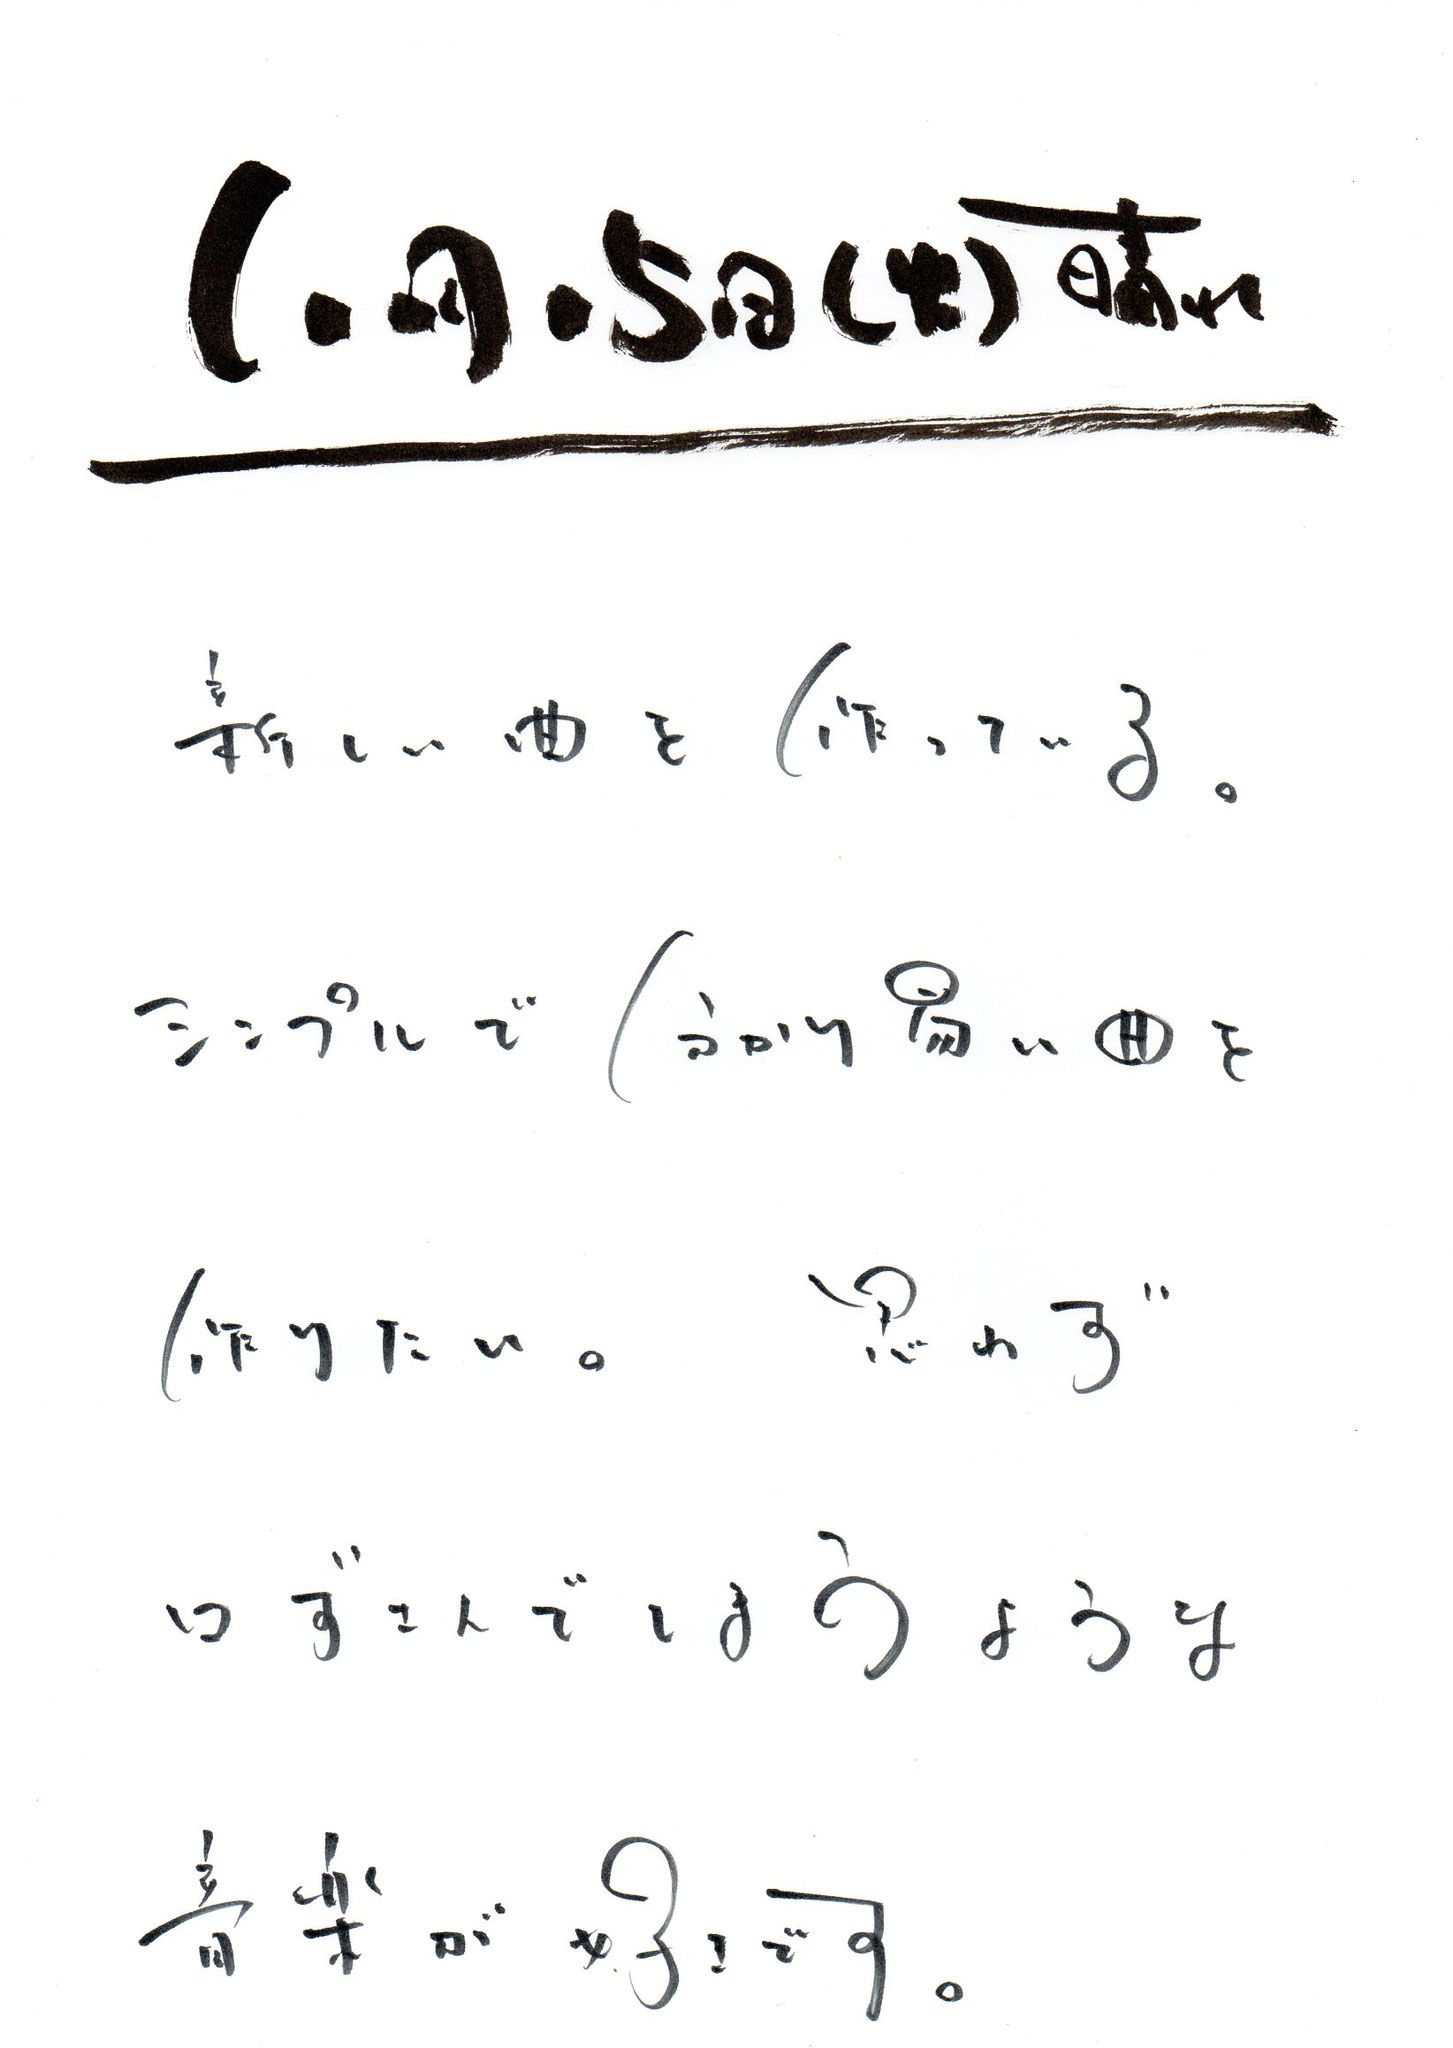 1.月.5日(火)晴れ
新しい曲を作っている。
シンプルで分かり易い曲を
作りたい。 思わず
口ずさんでしまうような
音楽が好きです。